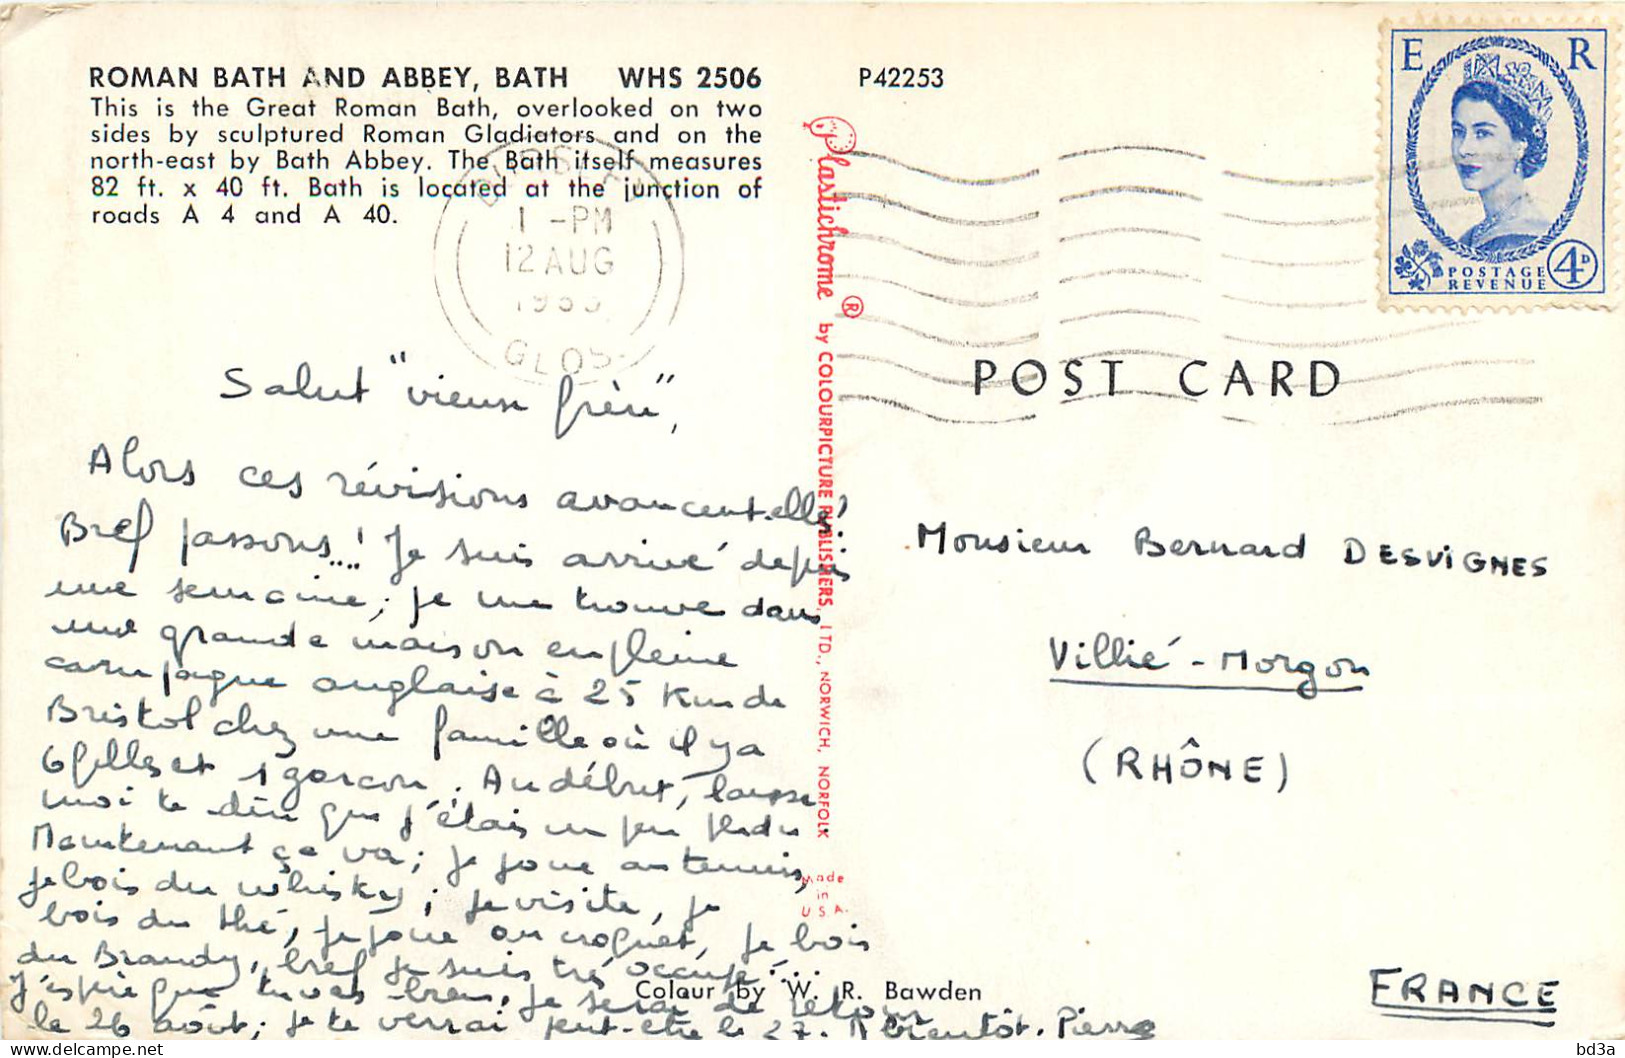 ROMAN BATH AND ABBEY, BATH WHS 2506
This is the Great Roman Bath, overlooked on two
sides by sculptured Roman Gladiators and on the
north-east by Bath Abbey. The Bath itself measures
82 ft. x 40 ft. Bath is located at the junction of
roads A 4 and A 40.
P42253
E R
POSTAGE
REVENUE
4D
1 - PM
12 AUG
GLOS.
Plastichrome ® by COLOURPICTURE PUBLISHERS, LTD., NORWICH, NORFOLK
Made
in
U S A.
POST CARD
Salut "vieux frère",
Alors ces révisions avancent-elles?
Bref passons...! Je suis arrivé depuis
une semaine; je me trouve dans
une grande maison en pleine
campagne anglaise à 25 Kms de
Bristol chez une famille où il y a
6 filles et 1 garçon. Au début, laisse
moi te dire que j'étais un peu perdu
Maintenant ça va; je joue au tennis,
je bois du whisky; je visite, je
bois du thé, je joue au croquet, je bois
du Brandy, bref je suis très occupé....
J'espère que tu vas bien, je serai de retour
le 26 août; je te verrai peut-être le 27. A bientôt. Pierre
Colour by W. R. Bawden
Monsieur Bernard DESVIGNES
Villié-Morgon
(RHÔNE)
FRANCE
bd3a